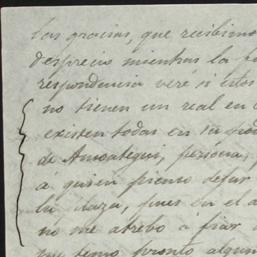 las gracias, que recibimo
desprecio mientras la
respondencia veré si estos
no tienen un real en
existen todas en su pod
de Amoategui, persona,
á quien pienso dejar
la casa, pues en el a
no me atrebo á fiar
temo pronto algun